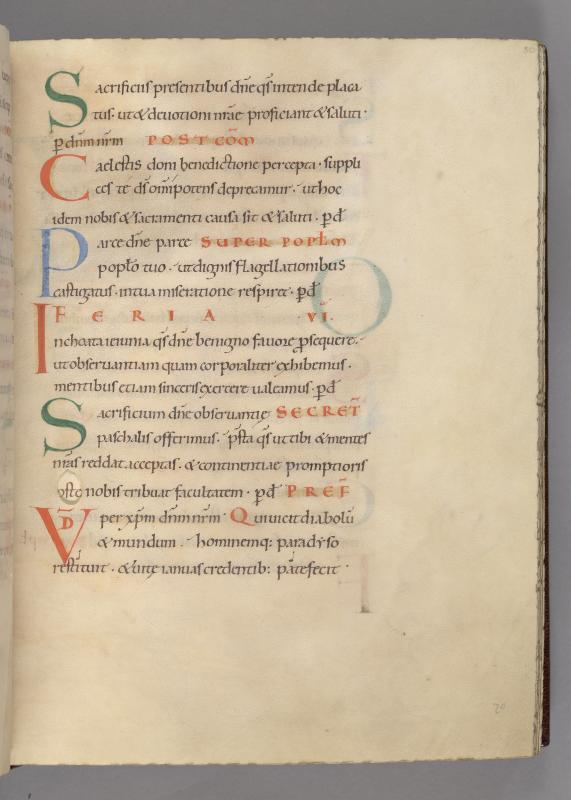 Sacrificiis presentibus dn̄e q̄s intende placa
tus. ut & deuotioni nr̄ae proficiant & saluti.
p̱ dn̄m nr̄m POST COM̄
Caelestis doni benedictione percepta. suppli
ces te ds̄ omīpotens deprecamur. ut hoc
idem nobis & sacramenti causa sit & saluti. p̱ d̄
Parce dn̄e parce SUPER POPL̄M
popl̄o tuo. ut dignis flagellationibus
castigatus. in tua miseratione respiret. p̱ d̄
FERIA VI.
Inchoata ieiunia q̄s dn̄e benigno fauore ꝓsequere.
ut obseruantiam quam corporaliter exhibemus.
mentibus etiam sinceris exercere ualeamus. p̱ d̄
Sacrificium dn̄e obseruantię SECRET̄
paschalis offerimus. p̄sta q̄s ut tibi & mentes
nr̄as reddat acceptas. & continentiae promptioris
nobis tribuat facultatem. p̱ d̄ PREF̄
VD̄ per xp̄m dn̄m nr̄m. Qui uicit diabolū
& mundum. hominemq: paradyso
restituit. & uitę ianuas credentib: patefecit.
80